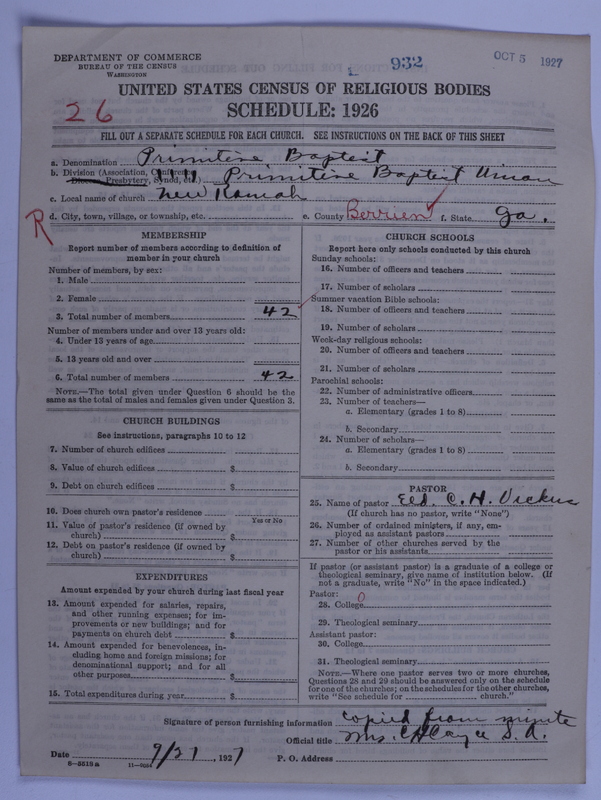 932
OCT 5 1927
DEPARTMENT OF COMMERCE
BUREAU OF THE CENSUS
WASHINGTON
UNITED STATES CENSUS OF RELIGIOUS BODIES
SCHEDULE: 1926
26
FILL OUT A SEPARATE SCHEDULE FOR EACH CHURCH. SEE INSTRUCTIONS ON THE BACK OF THIS SHEET
a. Denomination Primitive Baptist
b. Division (Association, Conference, Diocese, Presbytery, Synod, etc.) Primitive Baptist Union
c. Local name of church New Ramah
R
d. City, town, village, or township, etc. e. County Berrien f. State Ga.
MEMBERSHIP
Report number of members according to definition of member in your church
Number of members, by sex:
1. Male
2. Female
3. Total number of members 42
Number of members under and over 13 years old:
4. Under 13 years of age
5. 13 years old and over
6. Total number of members 42
NOTE.—The total given under Question 6 should be the same as the total of males and females given under Question 3.
CHURCH BUILDINGS
See instructions, paragraphs 10 to 12
7. Number of church edifices
8. Value of church edifices $
9. Debt on church edifices $
10. Does church own pastor's residence
Yes or No
11. Value of pastor's residence (if owned by church) $
12. Debt on pastor's residence (if owned by church) $
EXPENDITURES
Amount expended by your church during last fiscal year
13. Amount expended for salaries, repairs, and other running expenses; for improvements or new buildings; and for payments on church debt $
14. Amount expended for benevolences, including home and foreign missions; for denominational support; and for all other purposes $
15. Total expenditures during year $
CHURCH SCHOOLS
Report here only schools conducted by this church
Sunday schools:
16. Number of officers and teachers
17. Number of scholars
Summer vacation Bible schools:
18. Number of officers and teachers
19. Number of scholars
Week-day religious schools:
20. Number of officers and teachers
21. Number of scholars
Parochial schools:
22. Number of administrative officers
23. Number of teachers—
a. Elementary (grades 1 to 8)
b. Secondary
24. Number of scholars—
a. Elementary (grades 1 to 8)
b. Secondary
PASTOR
25. Name of pastor Eld. C. H. Vickers
(If church has no pastor, write "None")
26. Number of ordained ministers, if any, employed as assistant pastors
27. Number of other churches served by the pastor or his assistants
If pastor (or assistant pastor) is a graduate of a college or theological seminary, give name of institution below. (If not a graduate, write "No" in the space indicated.)
Pastor: 0
28. College
29. Theological seminary
Assistant pastor:
30. College
31. Theological seminary
NOTE.—Where one pastor serves two or more churches, Questions 28 and 29 should be answered only on the schedule for one of the churches; on the schedules for the other churches, write "See schedule for church."
Signature of person furnishing information Copied from minute
Official title Mrs. C H Cayce S. A.
Date 9/21, 1927 P. O. Address
11—9064